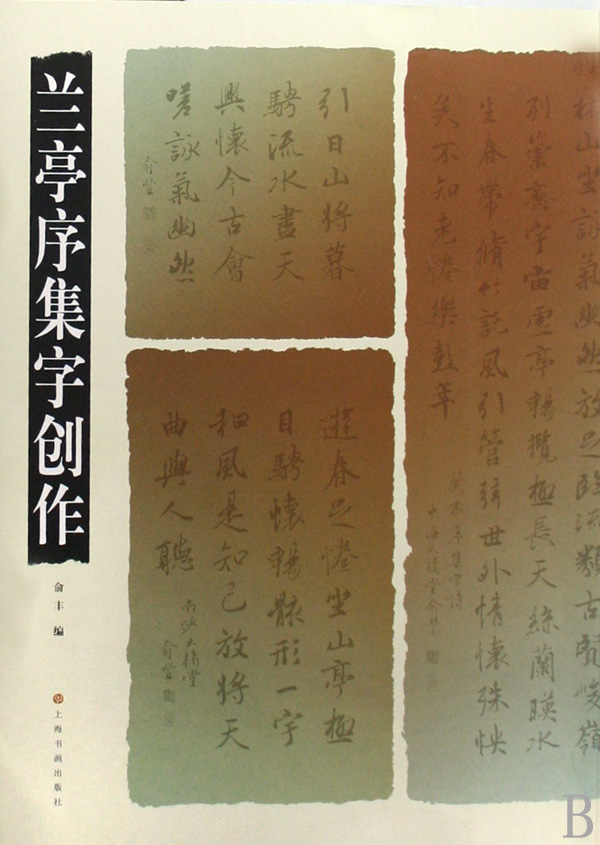 兰亭序集字创作
俞丰 编
上海书画出版社
引日山將暮
騁流水盡天
興懷今古會
嗟詠氣幽然
俞豐
山坐詠氣幽然放足臨流類古賢峻嶺
列 宇 虛亭暢攬極長天絲蘭暎水
生春帶脩竹託風引管弦世外情懷殊快
矣不知老惓樂彭年
蘭亭序集字詩
遊春足惓坐山亭極
目騁懷暢骸形一字
和風是知己放將天
曲與人聽
俞豐
B